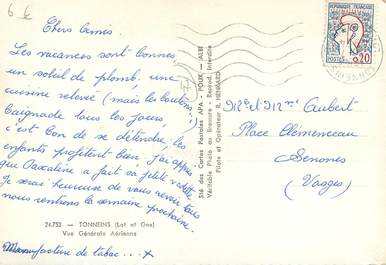 6 €
Chers Amis.
Les vacances sont bonnes,
un soleil de plomb, une
cuisine relevé (mais les boutons..)
Baignade tous les jours,
c'est bon de se détendre, les
enfants profitent bien, j'ai appris
que Pascaline a fait sa petite vedette
Je serai heureuse de vous revoir tous
nous rentrons la semaine prochaine.
24.752 - TONNEINS (Lot et Gne)
Vue Générale Aérienne
Manufacture de tabac...
Sté des Cartes Postales APA - POUX - ALBI
Véritable Photo au Bromure - Reprod. Interdite
Pilote et Opérateur R. HENRARD
REPUBLIQUE FRANÇAISE
POSTES
0,20
Mr et Mme Aubert
Place Clémenceau
Senones
(Vosges)